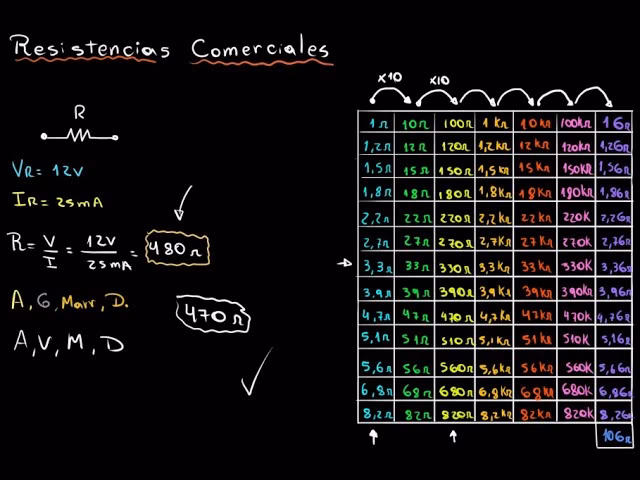 Resistencias Comerciales
x10 x10
R
VR = 12V
IR = 25mA
R = V/I = 12V/25mA = 480Ω
A, G, Marr, D.
470Ω
A, V, M, D
1Ω 10Ω 100Ω 1KΩ 10KΩ 100KΩ 1GΩ
1,2Ω 12Ω 120Ω 1,2KΩ 12KΩ 120KΩ 1,2GΩ
1,5Ω 15Ω 150Ω 1,5KΩ 15KΩ 150KΩ 1,5GΩ
1,8Ω 18Ω 180Ω 1,8KΩ 18KΩ 180KΩ 1,8GΩ
2,2Ω 22Ω 220Ω 2,2KΩ 22KΩ 220K 2,2GΩ
2,7Ω 27Ω 270Ω 2,7KΩ 27KΩ 270K 2,7GΩ
3,3Ω 33Ω 330Ω 3,3KΩ 33KΩ 330K 3,3GΩ
3,9Ω 39Ω 390Ω 3,9KΩ 39KΩ 390KΩ 3,9GΩ
4,7Ω 47Ω 470Ω 4,7KΩ 47KΩ 470K 4,7GΩ
5,1Ω 51Ω 510Ω 5,1KΩ 51KΩ 510K 5,1GΩ
5,6Ω 56Ω 560Ω 5,6KΩ 56KΩ 560K 5,6GΩ
6,8Ω 68Ω 680Ω 6,8KΩ 68KΩ 680K 6,8GΩ
8,2Ω 82Ω 820Ω 8,2KΩ 82KΩ 820K 8,2GΩ
10GΩ